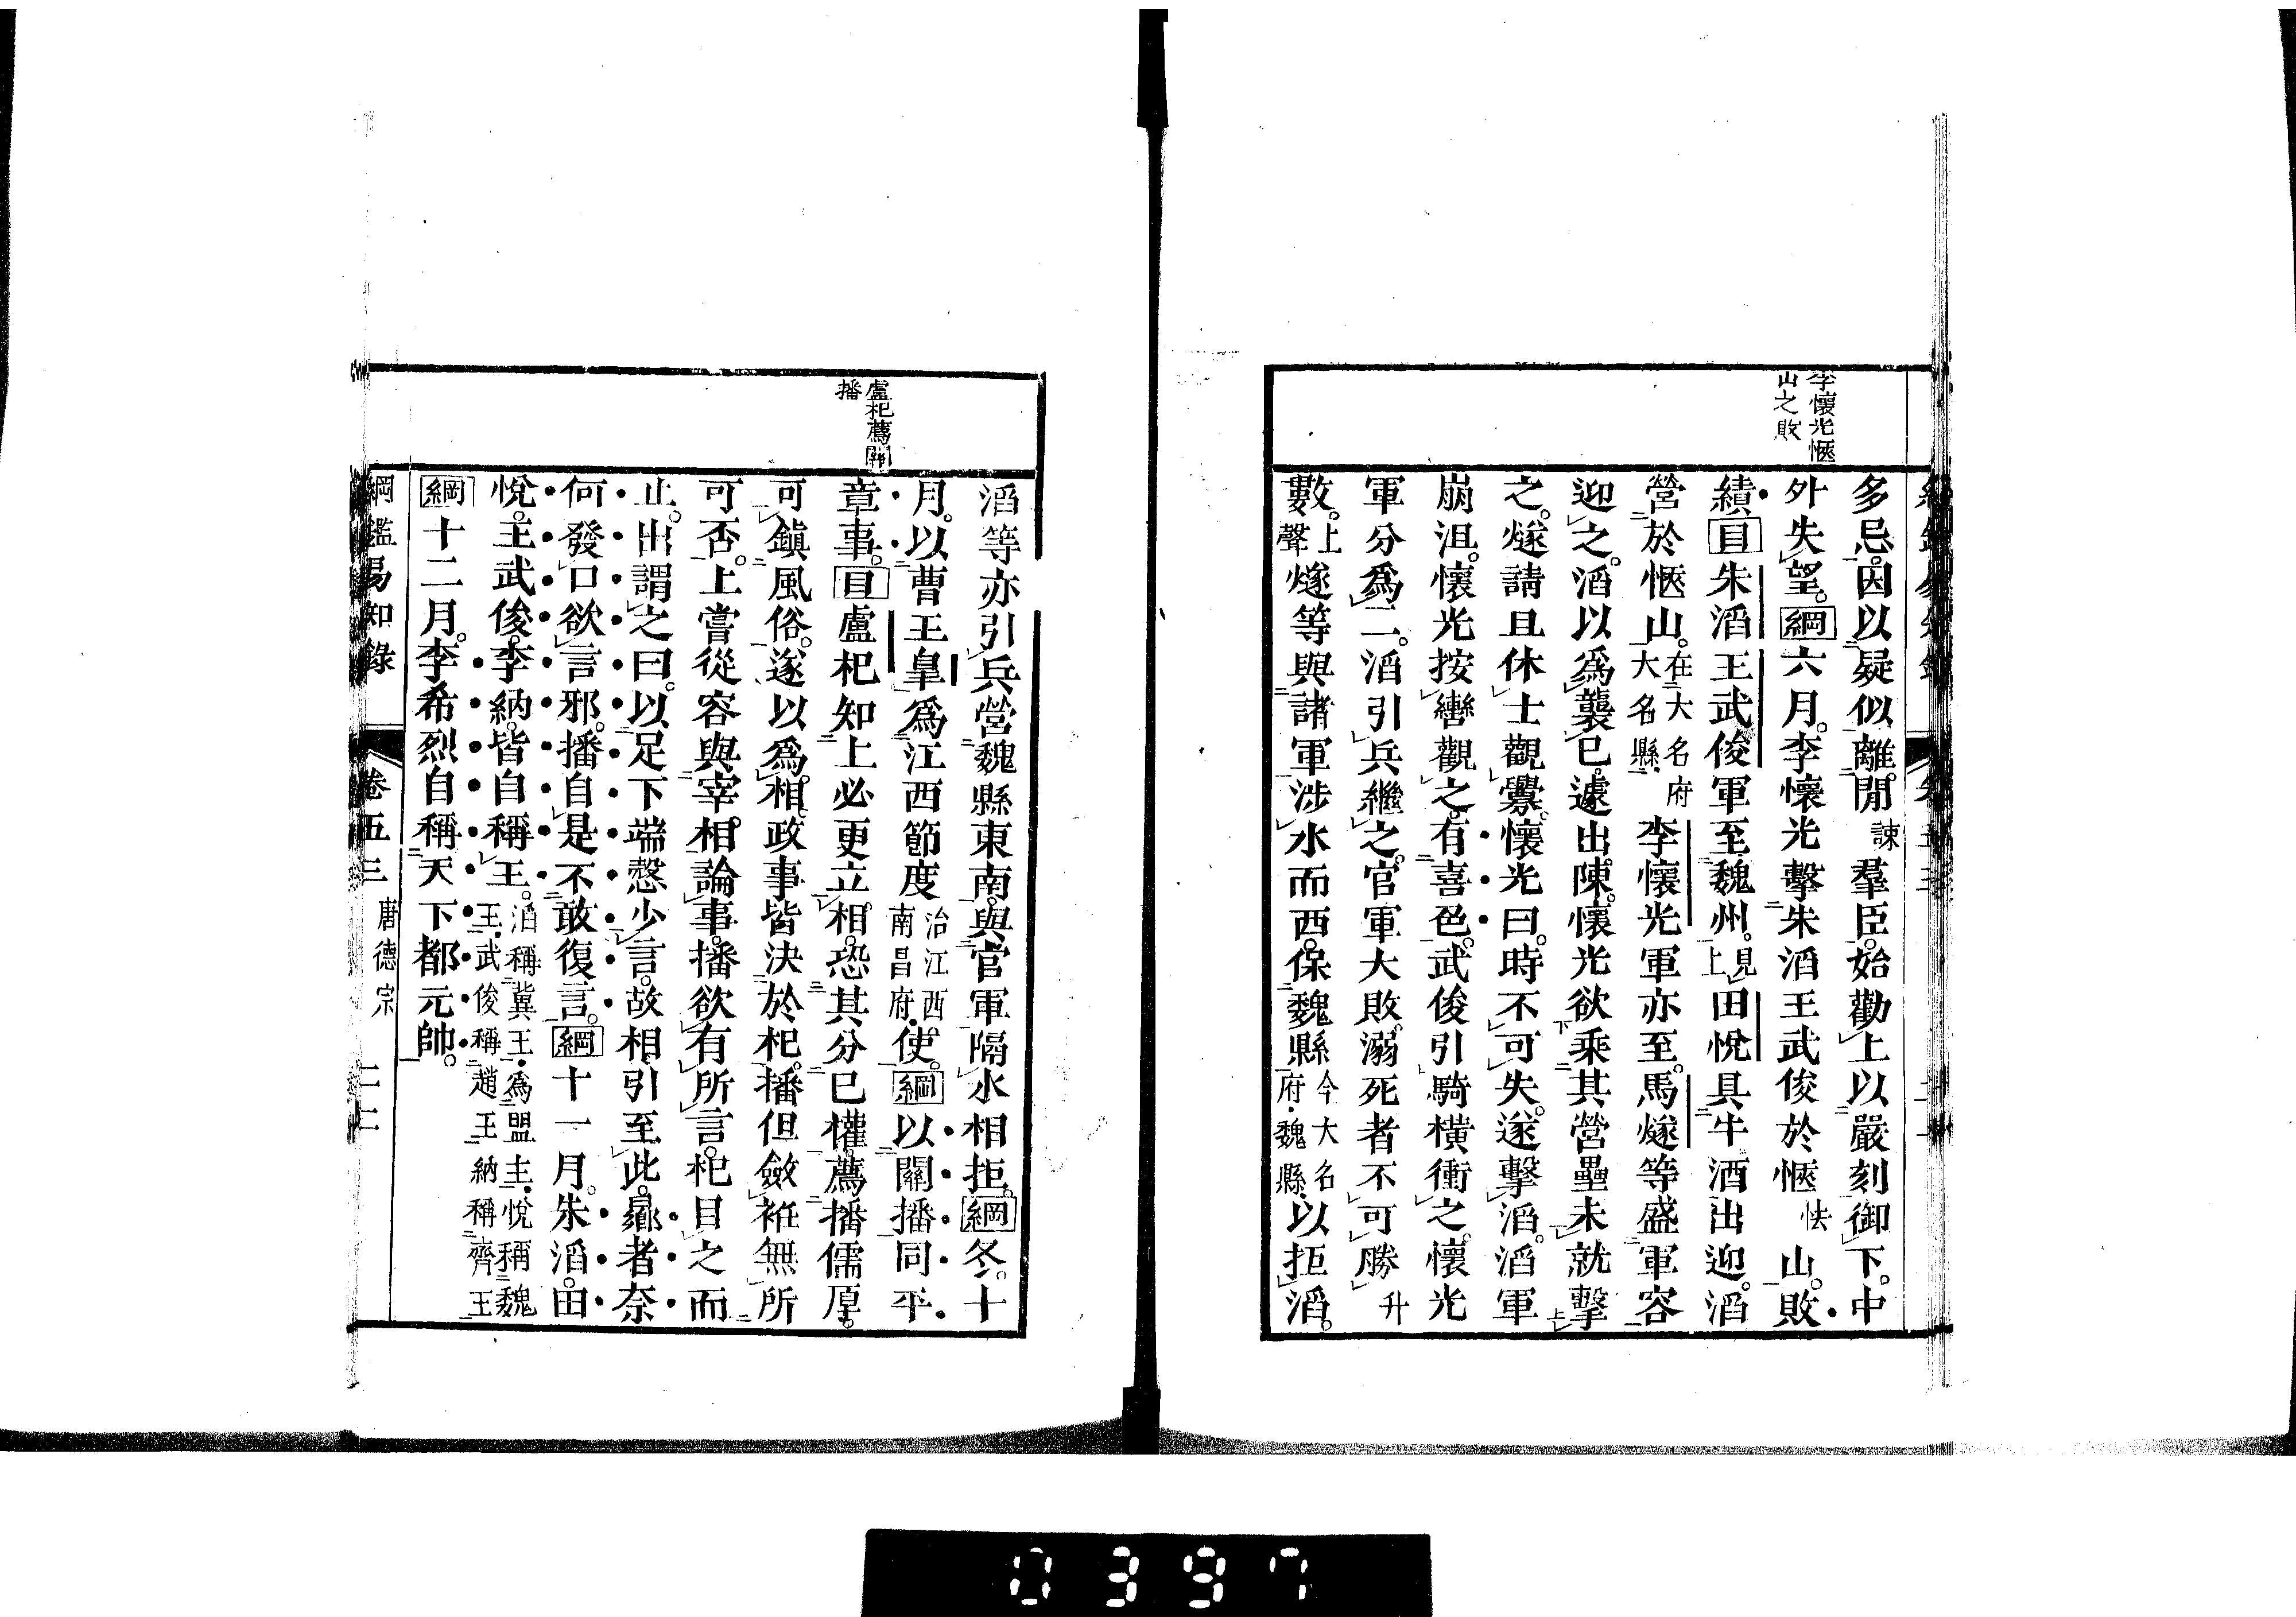 李懷光愜
山之敗
多忌。因以疑似離閒諫羣臣。始勸上以嚴刻御下。中
外失望。綱六月。李懷光擊朱滔王武俊於愜怯山。敗
績目朱滔王武俊軍至魏州。見上田悅具牛酒出迎。滔
營於愜山。在大名府大名縣李懷光軍亦至。馬燧等盛軍容
迎之。滔以爲襲已。遽出陳。懷光欲乘其營壘未就擊
之。燧請且休士觀釁。懷光曰。時不可失。遂擊滔。滔軍
崩沮。懷光按轡觀之。有喜色。武俊引騎橫衝之。懷光
軍分爲二。滔引兵繼之。官軍大敗。溺死者不可勝升
數。上聲燧等與諸軍涉水而西。保魏縣今大名府魏縣以拒滔。
盧杞薦關
播
滔等亦引兵營魏縣東南。與官軍隔水相拒。綱冬。十
月。以曹王皐爲江西節度治江西南昌府使。綱以關播同平
章事。目盧杞知上必更立相。恐其分已權。薦播儒厚。
可鎮風俗。遂以爲相。政事皆決於杞。播但斂袵無所
可否。上嘗從容與宰相論事。播欲有所言。杞目之而
止。出謂之曰。以足下端慤少言。故相引至此。曏者奈
何發口欲言邪。播自是不敢復言。綱十一月。朱滔。田
悅。王武俊。李納。皆自稱王。滔稱冀王爲盟主悅稱魏王武俊稱趙王納稱齊王
綱十二月。李希烈自稱天下都元帥。
綱鑑易知錄 卷五三 唐德宗 二二
0397